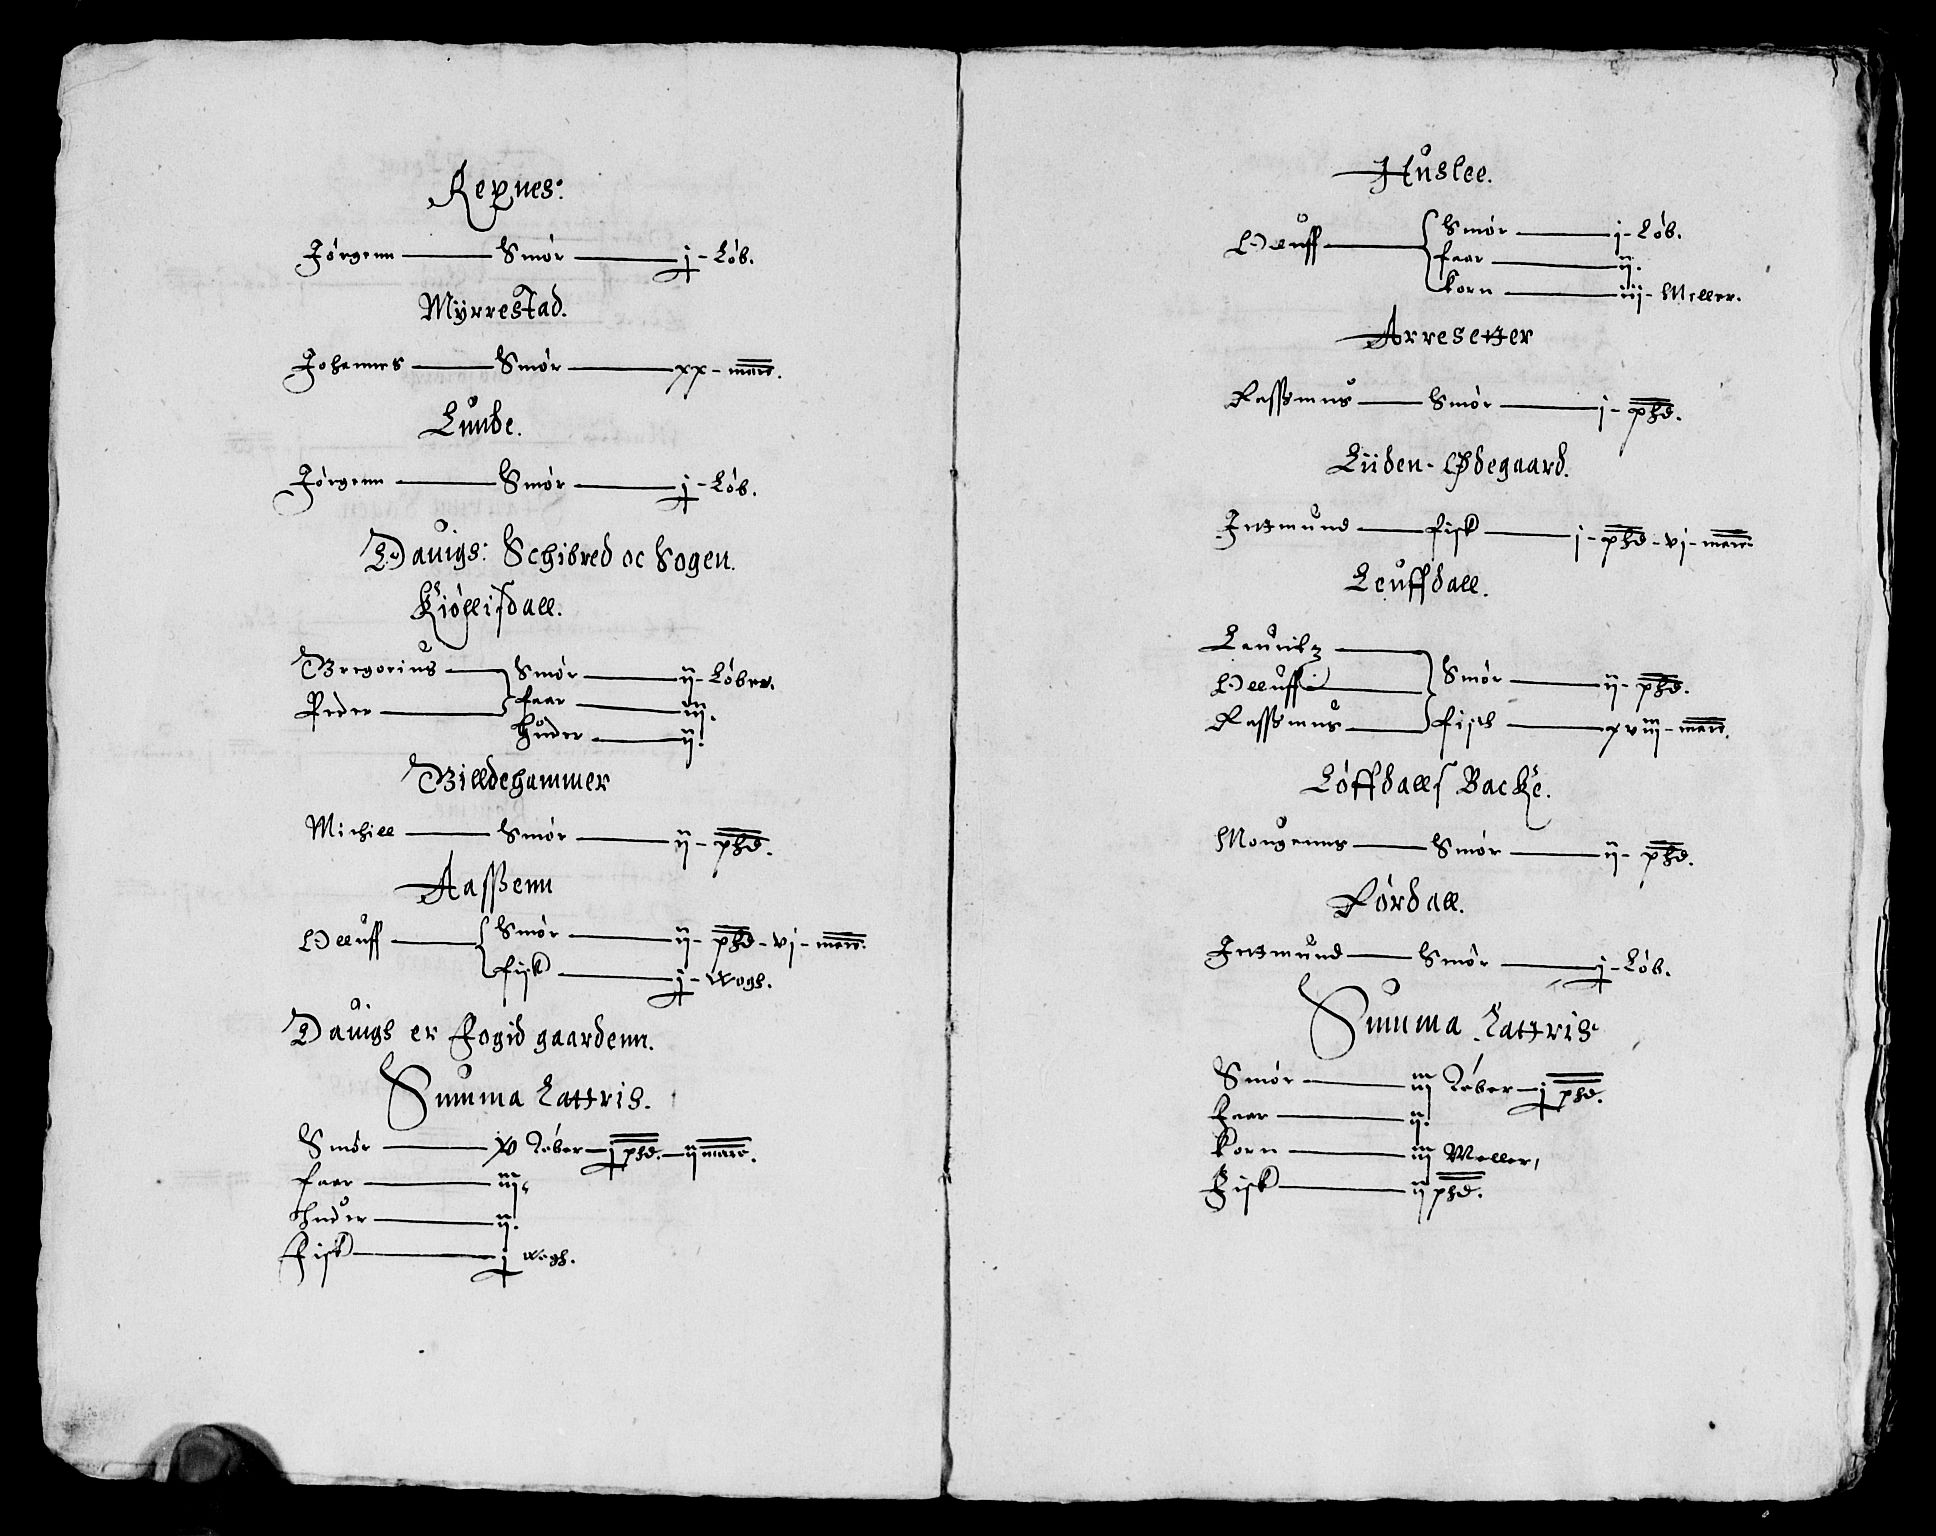 Repnes:
Jørgenn — Smør — j - Løb.
Myrrestad.
Johannes — Smør — xx - marc.
Lunde.
Jørgenn — Smør — j - Løb.
Dauigs: Schibred oc Sogen.
Kiøllisdall.
Gregorius — Smør — ij - Løber.
Peder — faar — iij.
huder — ij.
Billdehammer
Michell — Smør — ij - phd.
Aassenn
Olluff — Smør — ij - phd - vj - marc.
fisk — j - Wogh.
Dauigs er Fogid gaardenn.
Summa Lattris.
Smør — xv Løber — j phd. — ij marc.
faar — iij.
huder — ij.
Fisk — j Wogh.
Huslee.
Olluff — Smør — j - Løb.
faar — ij.
korn — iij - Meller.
Arresetter
Rassmus — Smør — j - phd.
Liiden - Ødegaard.
Jettmund — fisk — j - phd - vj - marc.
Leuffdall.
Lauritz —
Olluff — Smør — ij - phd.
Rassmus — fisk — xviij - marc.
Løffdalls Backe.
Mougenns — Smør — ij - phd.
Førdall.
Jettmund — Smør — j - Løb.
Summa Lattris
Smør — iij Løber — j phd.
Faar — ij.
korn — iij Meller,
Fisk — ij phd.